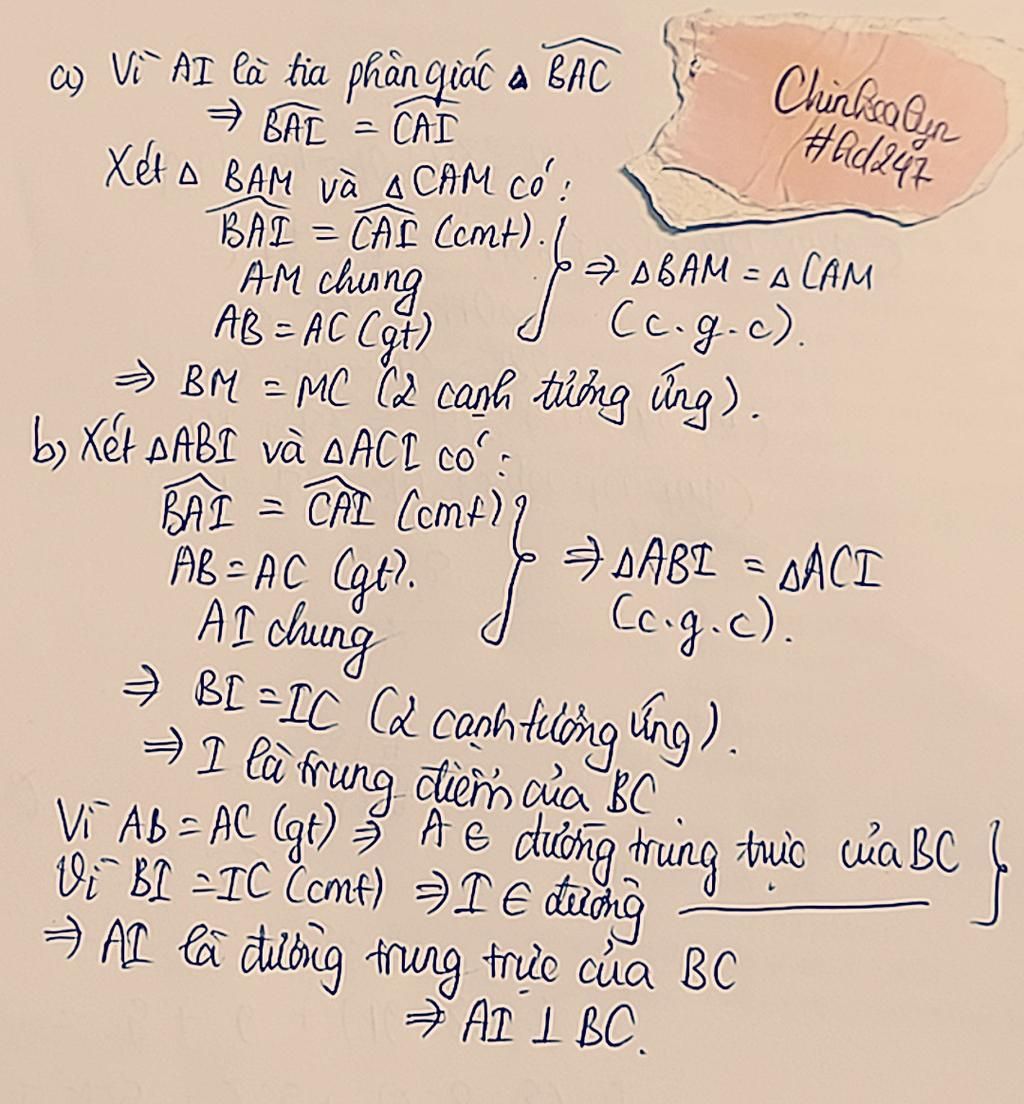 a) Vì AI là tia phân giác △ BAC
⇒ BAI = CAI
Xét △ BAM và △CAM có:
BAI = CAI (cmt).
AM chung
AB = AC (gt)
⇒ △BAM = △CAM
(c.g.c).
⇒ BM = MC (2 cạnh tương ứng).
b) Xét △ABI và △ACI có:
BAI = CAI (cmt)
AB = AC (gt).
AI chung
⇒ △ABI = △ACI
(c.g.c).
⇒ BI = IC (2 cạnh tương ứng).
⇒ I là trung điểm của BC
Vì AB = AC (gt) ⇒ A ∈ đường trung trực của BC
Vì BI = IC (cmt) ⇒ I ∈ đường ————
⇒ AI là đường trung trực của BC
⇒ AI ⊥ BC.
#Qd247